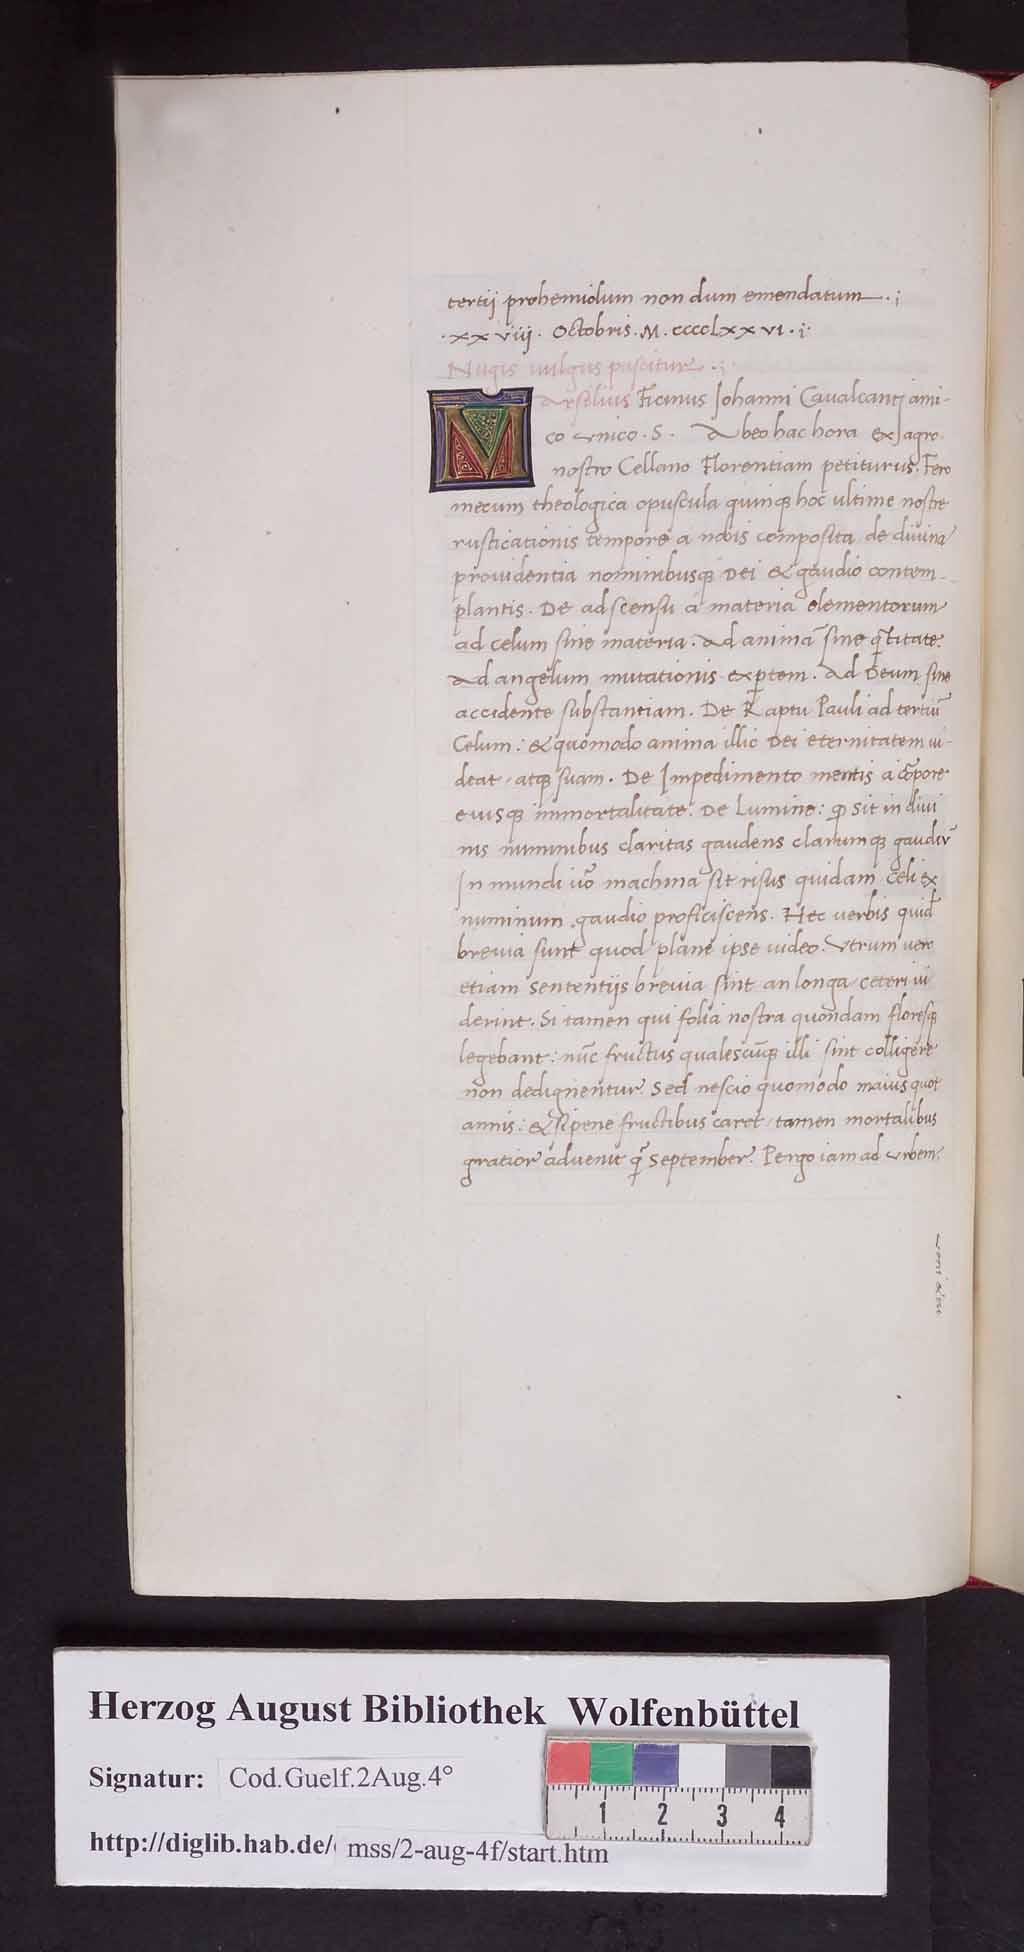 tertij prohemiolum non dum emendatum ·;
·xxviij· Octobris · M · cccclxxvi · ;
Nugis uulgus pascitur · ;
M arsilius Ficinus Johanni Caualcantj ami-
co vnico · S · Abeo hac hora ex agro
nostro Cellano Florentiam petiturus. Fero
mecum theologica opuscula quinq; hoc ultime nostre
rusticationis tempore a nobis composita de diuina
prouidentia nominibusq; Dei & gaudio contem-
plantis. De adscensu a materia elementorum
ad celum sine materia. Ad animā sine q̄titate.
Ad angelum mutationis exp̱tem. Ad Deum sine
accidente substantiam. De Raptu Pauli ad tertiū
Celum: & quomodo anima illic Dei eternitatem ui-
deat, atq; suam. De Impedimento mentis a cōpore
eiusq; immortalitate. De Lumine: ꝙ sit in diui
nis numinibus claritas gaudens clarumq; gaudiū
In mundi uō machina sit risus quidam celi ex
numinum gaudio proficiscens. Hec verbis quid̄
breuia sunt quod plane ipse video. Vtrum vero
etiam sententijs breuia sint an longa ceteri ui
derint. Si tamen qui folia nostra quondam floresq;
legebant: nūc fructus qualescūq; illi sint colligere
non dedignentur. Sed nescio quomodo maius quot
annis: & si pene fructibus caret, tamen mortalibus
gratior aduenit q̄ september. Pergo iam ad vrbem.
Herzog August Bibliothek Wolfenbüttel
Signatur: Cod.Guelf.2Aug.4°
1 2 3 4
http://diglib.hab.de/ mss/2-aug-4f/start.htm